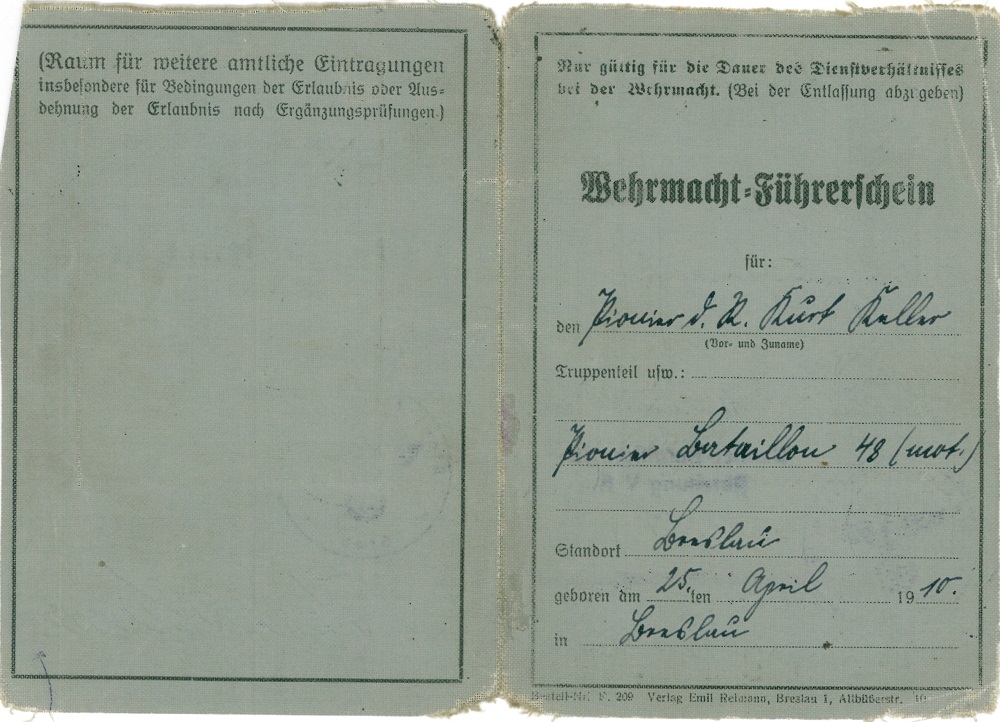 (Raum für weitere amtliche Eintragungen
insbesondere für Bedingungen der Erlaubnis oder Aus-
dehnung der Erlaubnis nach Ergänzungsprüfungen)
Nur gültig für die Dauer des Dienstverhältnisses
bei der Wehrmacht. (Bei der Entlassung abzugeben)
Wehrmacht-Führerschein
für:
den Pionier d. R. Kurt Keller
(Vor- und Zuname)
Truppenteil usw.:
Pionier Bataillon 48 (mot.)
Standort Breslau
geboren am 25. ten April 1910.
in Breslau
Bestell-Nr. F. 209 Verlag Emil Reimann, Breslau 1, Altbüßerstr. 10